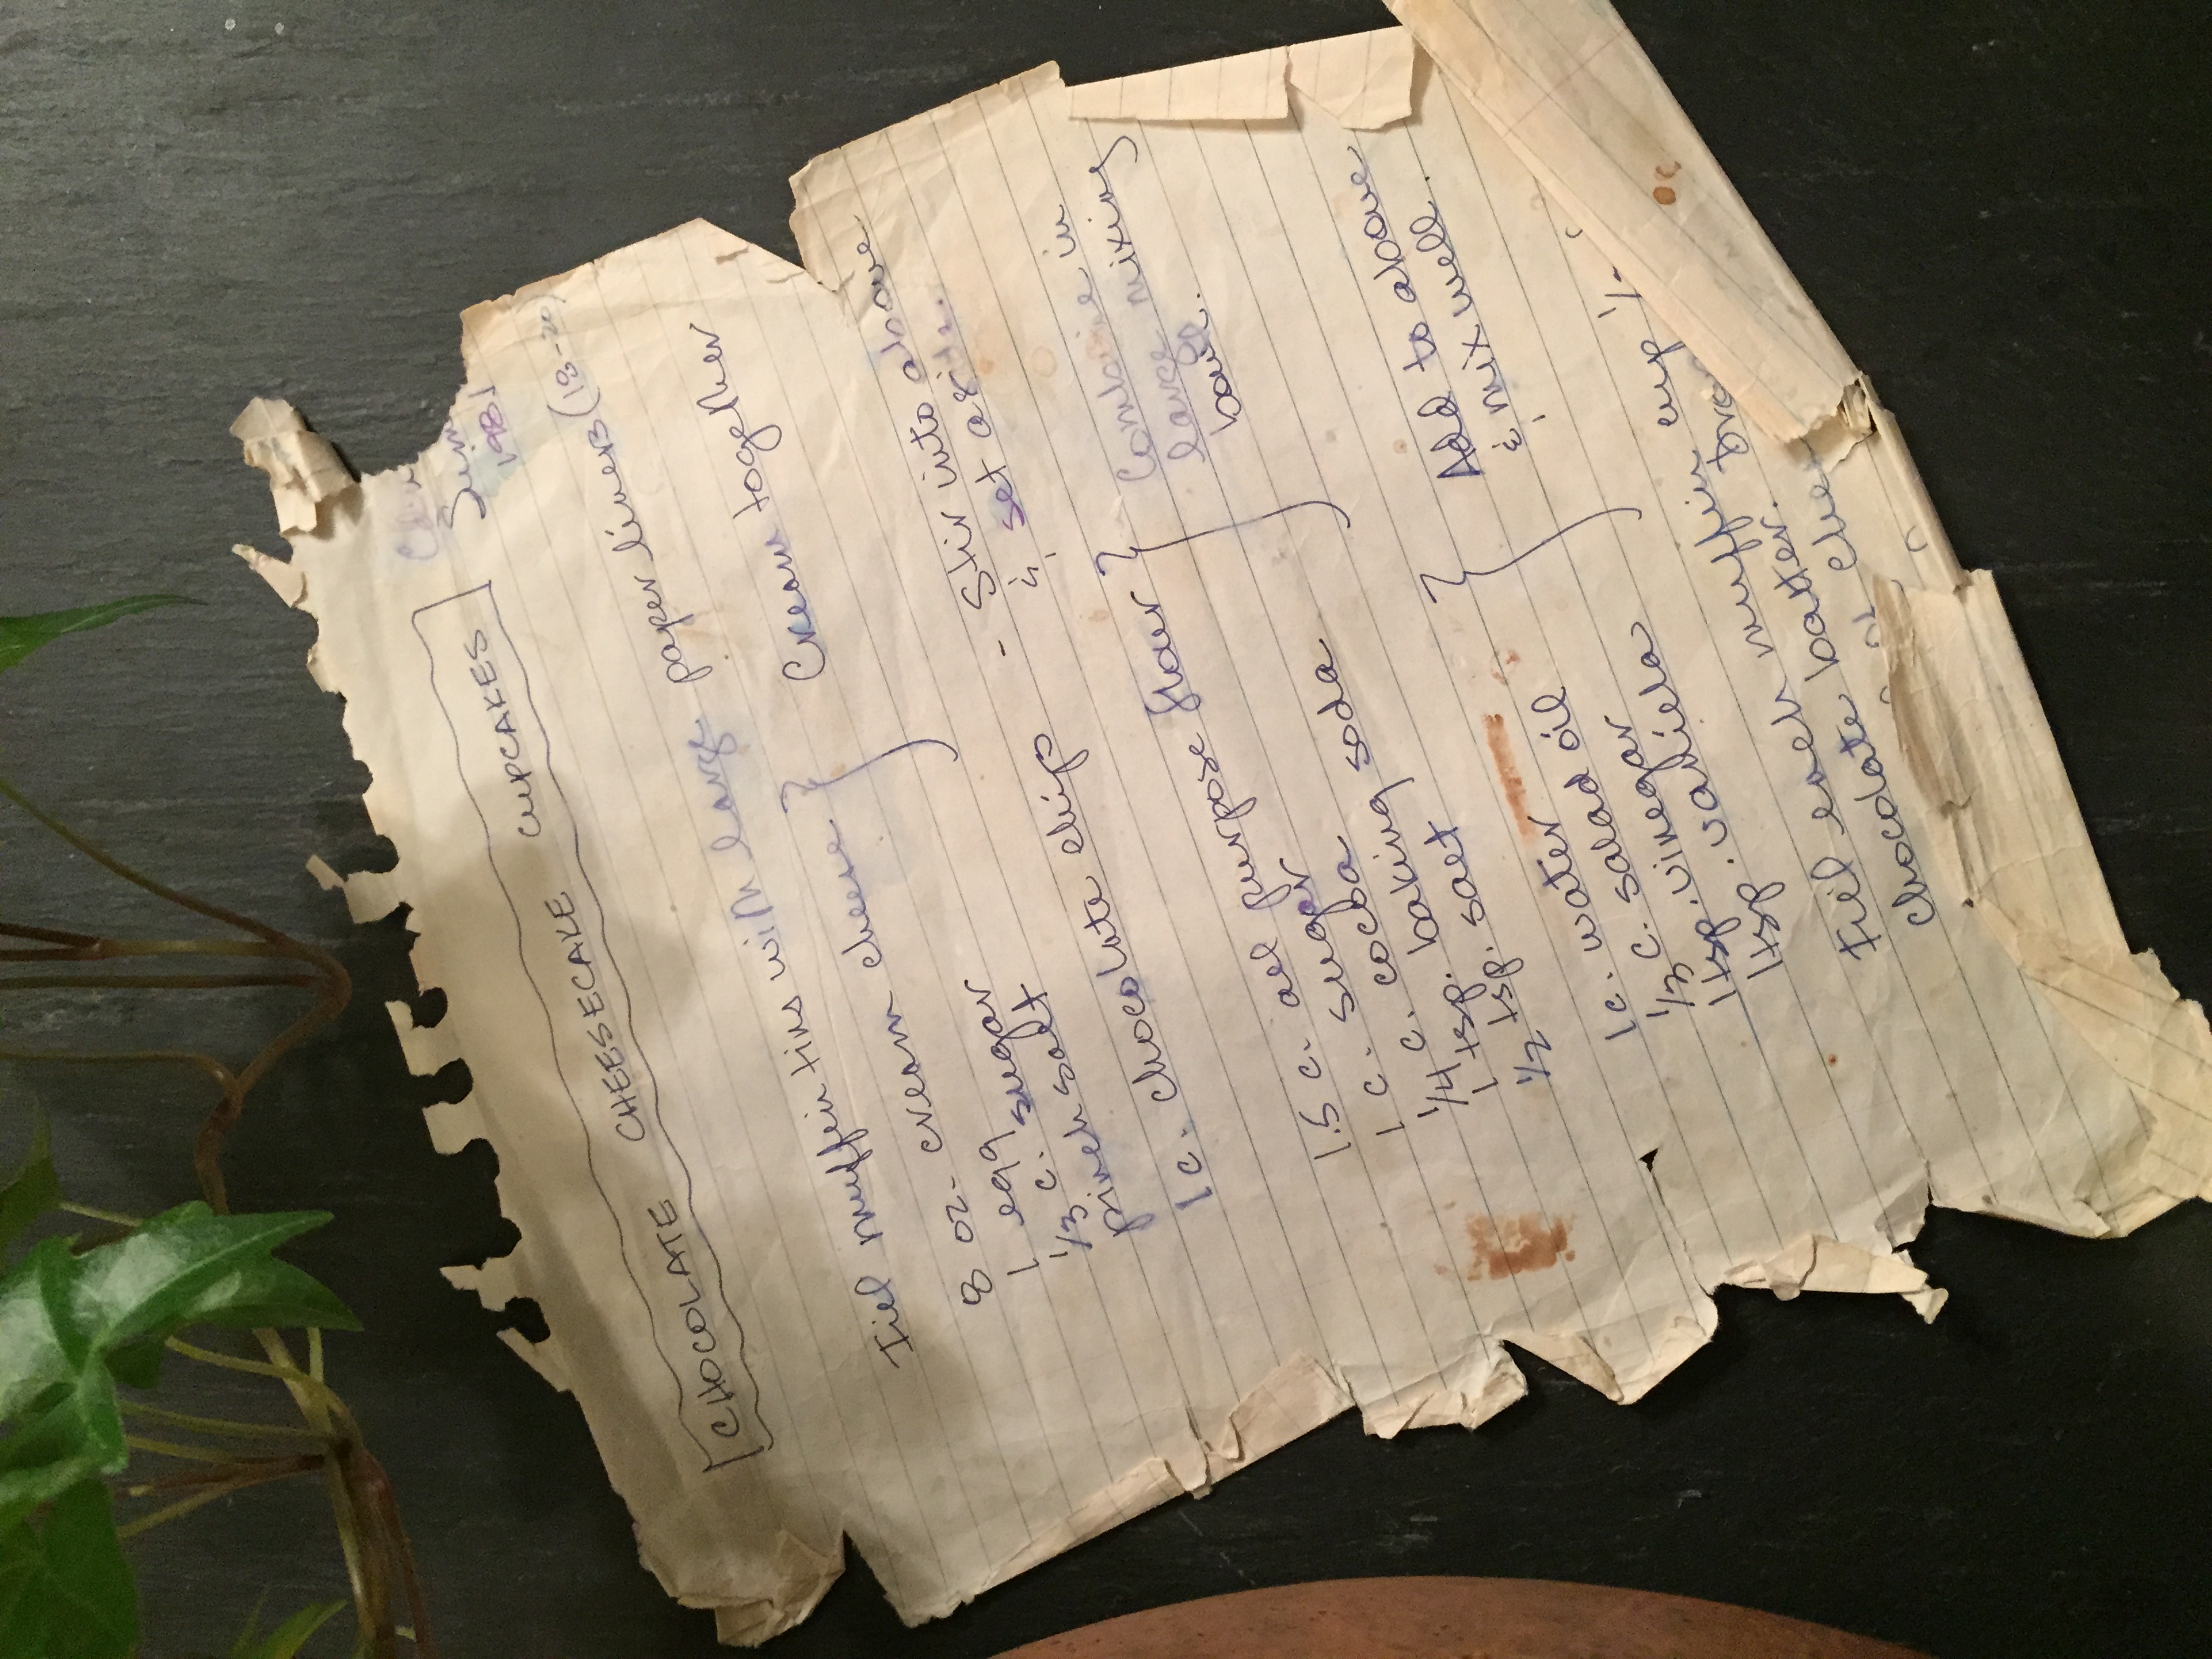 CHOCOLATE CHEESECAKE CUPCAKES
1981
Fill muffin tins with large paper liners (18-20)
8 oz. cream cheese
1 egg
1/3 c. sugar
pinch salt
Cream together
1 c. chocolate chips - Stir into above
& set aside.
1.5 c. all purpose flour
1 c. sugar
1/4 c. cocoa
1 tsp. baking soda
1/2 tsp. salt
Combine in
large mixing
bowl.
1 c. water
1/3 c. salad oil
1 tsp. vinegar
1 tsp. vanilla
Add to above
& mix well.
Fill each muffin cup
chocolate batter.
chocolate